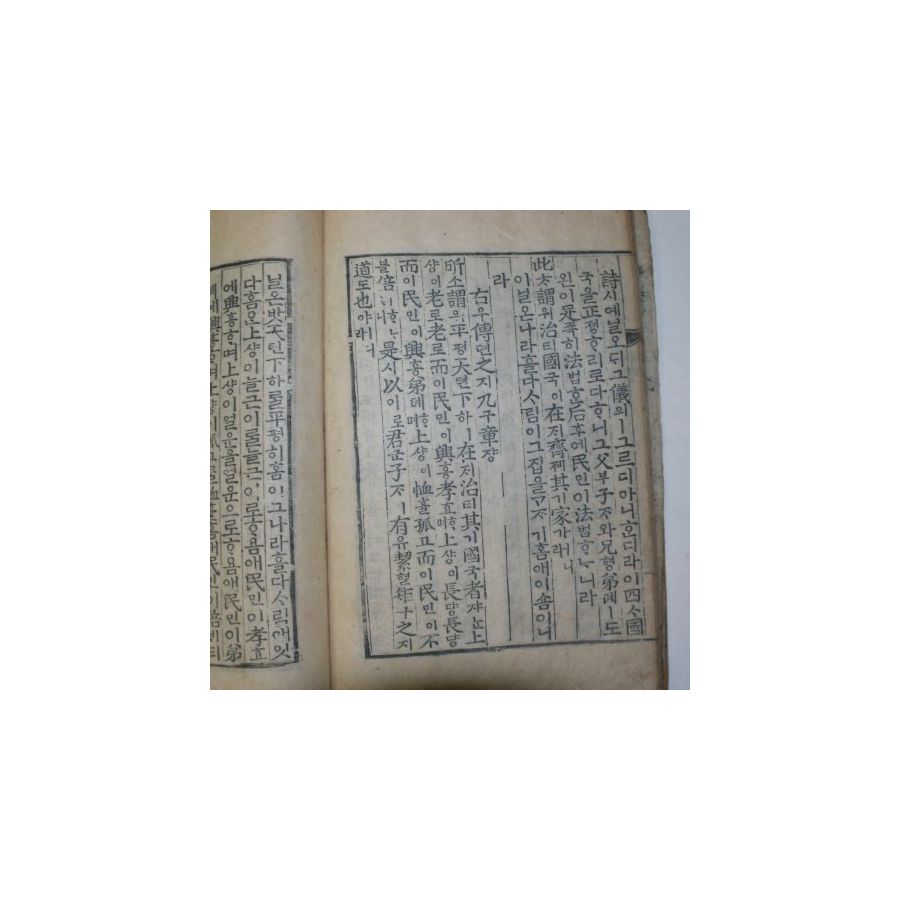 詩시예닐오ᄃᆡ그儀의ㅣ그르디아니ᄒᆞᆫ디라이四ᄉᆞ國
국을正졍ᄒᆞ리로다ᄒᆞ니그父부子ᄌᆞ와兄형弟뎨ㅣ도
왼이足죡히法법ᄒᆞᆫ后후에民민이法법ᄒᆞᄂᆞ니라
此ᄎᆞ謂위治티國국이在ᄌᆡ齊졔其기家가ㅣ니라
이닐온나라ᄒᆞᆯ다ᄉᆞ림이그집을ᄀᆞᄌᆞ기홈애이숌이니
라
右우傳뎐之지九구章쟝
所소謂위平평天텬下하ㅣ在ᄌᆡ治티其기國국者쟈ᄂᆞᆫ上
샹이老로老로而이民민이興흥孝효ᄒᆞ며上샹이長댱長댱
而이民민이興흥弟뎨ᄒᆞ며上샹이恤휼孤고而이民민이不
블倍ᄇᆡᄒᆞᄂᆞ니是시以이로君군子ᄌᆞㅣ有유絜혈矩구之지
道도也야ㅣ니라
닐온밧天텬下하ᄅᆞᆯ平평히홈이그나라ᄒᆞᆯ다ᄉᆞ림애잇
다홈ᄋᆞᆫ上샹이늘근이ᄅᆞᆯ늘근이로ᄒᆞ욤애民민이孝효
예興흥ᄒᆞ며上샹이얼운을얼운으로ᄒᆞ욤애民민이弟